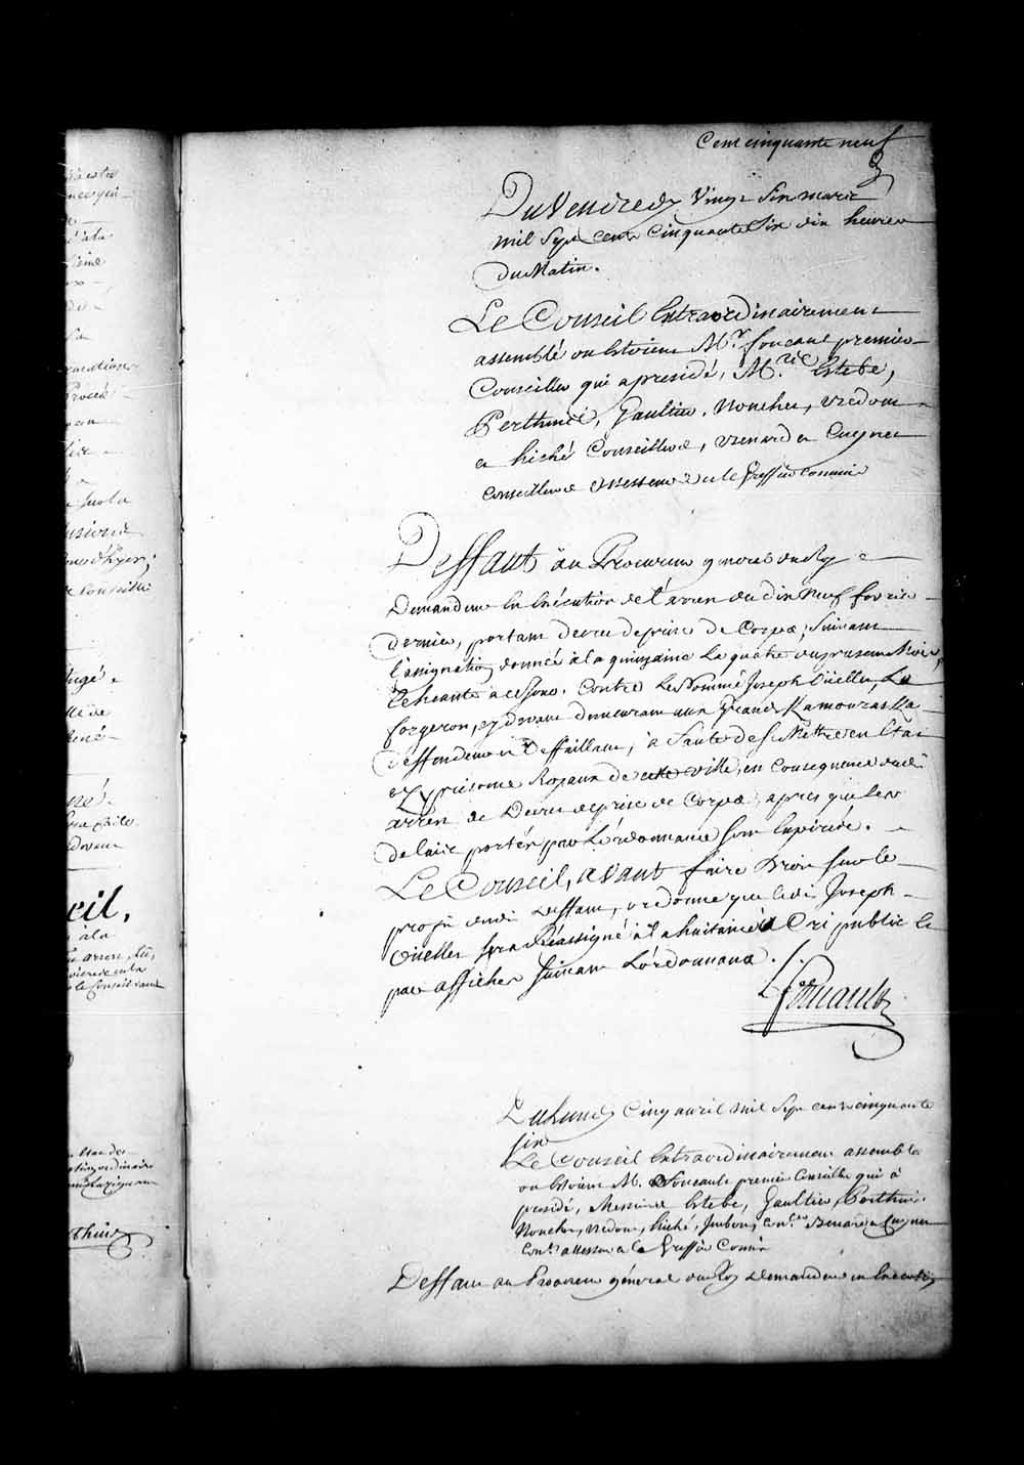 Cent cinquante neuf
Du Vendredy Vingt Six mars
mil Sept cent Cinquante Six dix heures
du Matin.
Le Conseil Extraordinairement
assemblé ou Estoient Mr. foucault premier
Conseiller qui a presidé, Mrs. Estebe,
Perthuis, Gaultier, Nouchet, Bedout
et hiché Conseillers, Benard et Cugnet
Conseillers assesseurs et le Greffier commis
Deffaut au Procureur general du Roy
Demandeur En Exécution de l'arrest du dix Neuf fevrier
dernier, portant decret de prise de Corps, Suivant
l'assignation donnée à la quinzaine Le quatre du present Mois,
Echeante a ce Jour. Contre Le Nommé Joseph Ouellet, dit Le
forgeron, cy devant demeurant aux Grands Kamouraska
Deffendeur et Deffaillant, à faute de se Mettre en Etat
es prisons Royaux de cette ville, en Consequence dudit
arrest de Decret de prise de Corps, apres que les
delais portés par L'ordonnance sont Expirés.
Le Conseil, avant faire Droit sur le
profit dudit deffaut, ordonne que ledit Joseph
Ouellet sera Réassigné à la huitaine à Cri public et
par affiches Suivant L'ordonnance. /.
foucault
Du Lundy Cinq avril mil Sept cent cinquante
six
Le Conseil Extraordinairement assemblé
ou Estoient M. foucault premier Conseiller qui à
presidé, Messieurs Estebe, Gaultier, Perthuis
Nouchet, Bedout, hiché, Imbert, Cons. Benard et Cugnet
Cons. assesseurs et le Greffier Commis
Deffaut au Procureur général du Roy demandeur en Execution